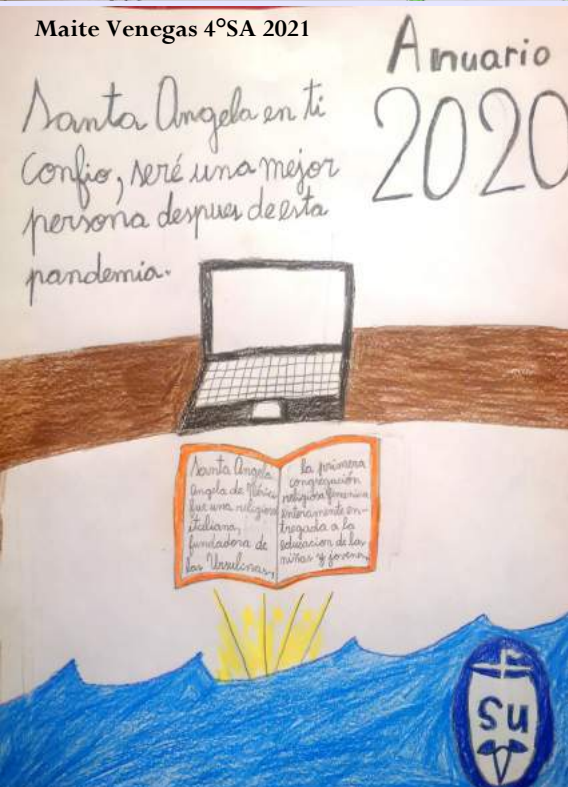 Maite Venegas 4°SA 2021
Anuario
2020
Santa Angela en ti
Confio, seré una mejor
persona despues de esta
pandemia.
Santa Angela
Angela de Mérici
fue una religiosa
italiana,
fundadora de
las Ursulinas,
la primera
congregación
religiosa femenina
enteramente en-
tregada a la
educacion de las
niñas y jovenes.
SU